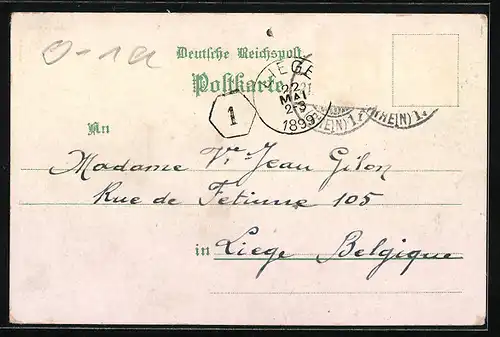 0-1a
Deutsche Reichspost
Postkarte
LIEGE
22
MAI
2-3
1899
1
(RHEIN) 1
(RHEIN) 1
An
Madame Vve Jean Gilon
Rue de Fetinne 105
in Liége Belgique